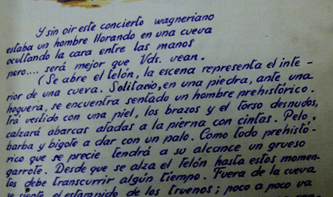 Y sin oir este concierto wagneriano
estaba un hombre llorando en una cueva
ocultando la cara entre las manos
pero.... será mejor que Vds. vean.
(Se abre el telón, la escena representa el inte-
rior de una cueva. Solitario, en una piedra, ante una
hoguera, se encuentra sentado un hombre prehistórico.
Irá vestido con una piel, los brazos y el torso desnudos,
calzará abarcas atadas a la pierna con cintas. Pelo,
barba y bigote a dar con un palo. Como todo prehistó-
rico que se precie tendrá a su alcance un grueso
garrote. Desde que se alza el telón hasta estos momen-
tos debe transcurrir algún tiempo. Fuera de la cueva
se siente el estampido de los truenos; poco a poco va